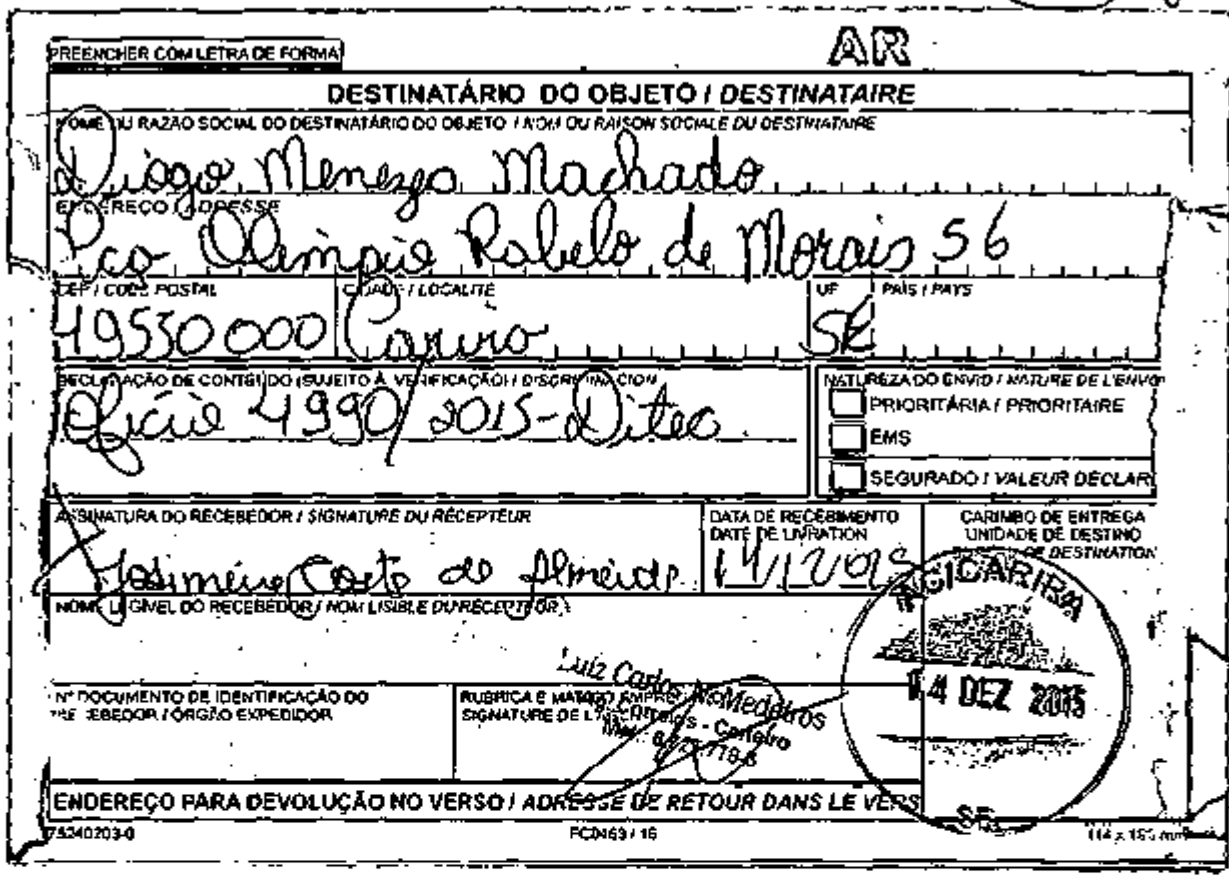 PREENCHER COM LETRA DE FORMA
AR
DESTINATÁRIO DO OBJETO / DESTINATAIRE
NOME OU RAZÃO SOCIAL DO DESTINATÁRIO DO OBJETO / NOM OU RAISON SOCIALE DU DESTINATAIRE
Diogo Menezes Machado
ENDEREÇO / ADRESSE
Pça Olimpio Rabelo de Morais 56
CEP / CODE POSTAL CIDADE / LOCALITÉ UF PAÍS / PAYS
49530000 SE
DECLARAÇÃO DE CONTEÚDO (SUJEITO À VERIFICAÇÃO) / DISCRIMINACION
Ofício 4990/2015-Ditec
NATUREZA DO ENVIO / NATURE DE L'ENVOI
PRIORITÁRIA / PRIORITAIRE
EMS
SEGURADO / VALEUR DÉCLAR
ASSINATURA DO RECEBEDOR / SIGNATURE DU RÉCEPTEUR
Josimeire Costa de Almeida
DATA DE RECEBIMENTO
DATE DE LIVRATION
CARIMBO DE ENTREGA
UNIDADE DE DESTINO
BUREAU DE DESTINATION
14 DEZ 2015
SE
NOME LEGÍVEL DO RECEBEDOR / NOM LISIBLE DU RÉCEPTEUR
Nº DOCUMENTO DE IDENTIFICAÇÃO DO
RECEBEDOR / ÓRGÃO EXPEDIDOR
RUBRICA E MAT. DO EMPREGADO
SIGNATURE DE L'AGENT
Luiz Carlos Medeiros
Correios - Carteiro
ENDEREÇO PARA DEVOLUÇÃO NO VERSO / ADRESSE DE RETOUR DANS LE VERS
75240203-0 FC0463 / 16 114 x 186 mm